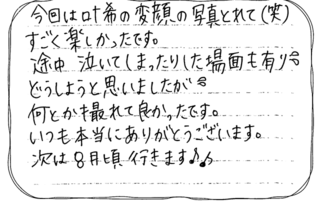 今回は叶希の変顔の写真とれて(笑)
すごく楽しかったです。
途中 泣いてしまったりした場面も有り
どうしようと思いましたが
何とかも撮れて良かったです。
いつも本当にありがとうございます。
次は8月頃行きます♪♪